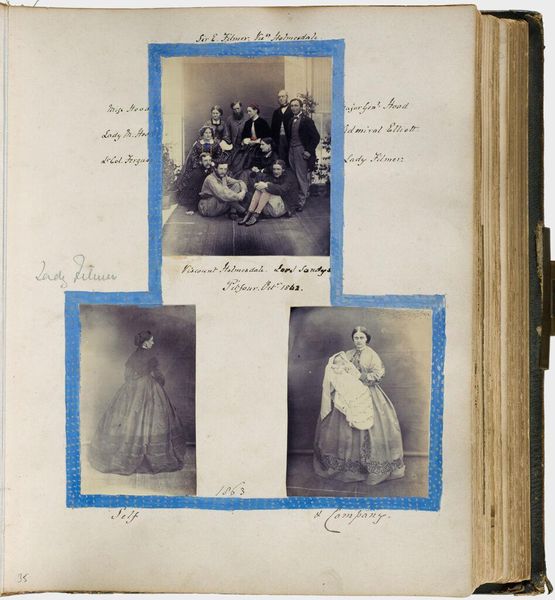 Sir E. Filmer. Visss Holmesdale
Miss Hood
Major Genl. Hood
Lady M. Hood
Admiral Elliott
Lt Col. Fergus
Lady Filmer
Viscount Holmesdale. Lord Sandys
Octr 1862.
Lady Filmer
1863
Self
& Company.
35